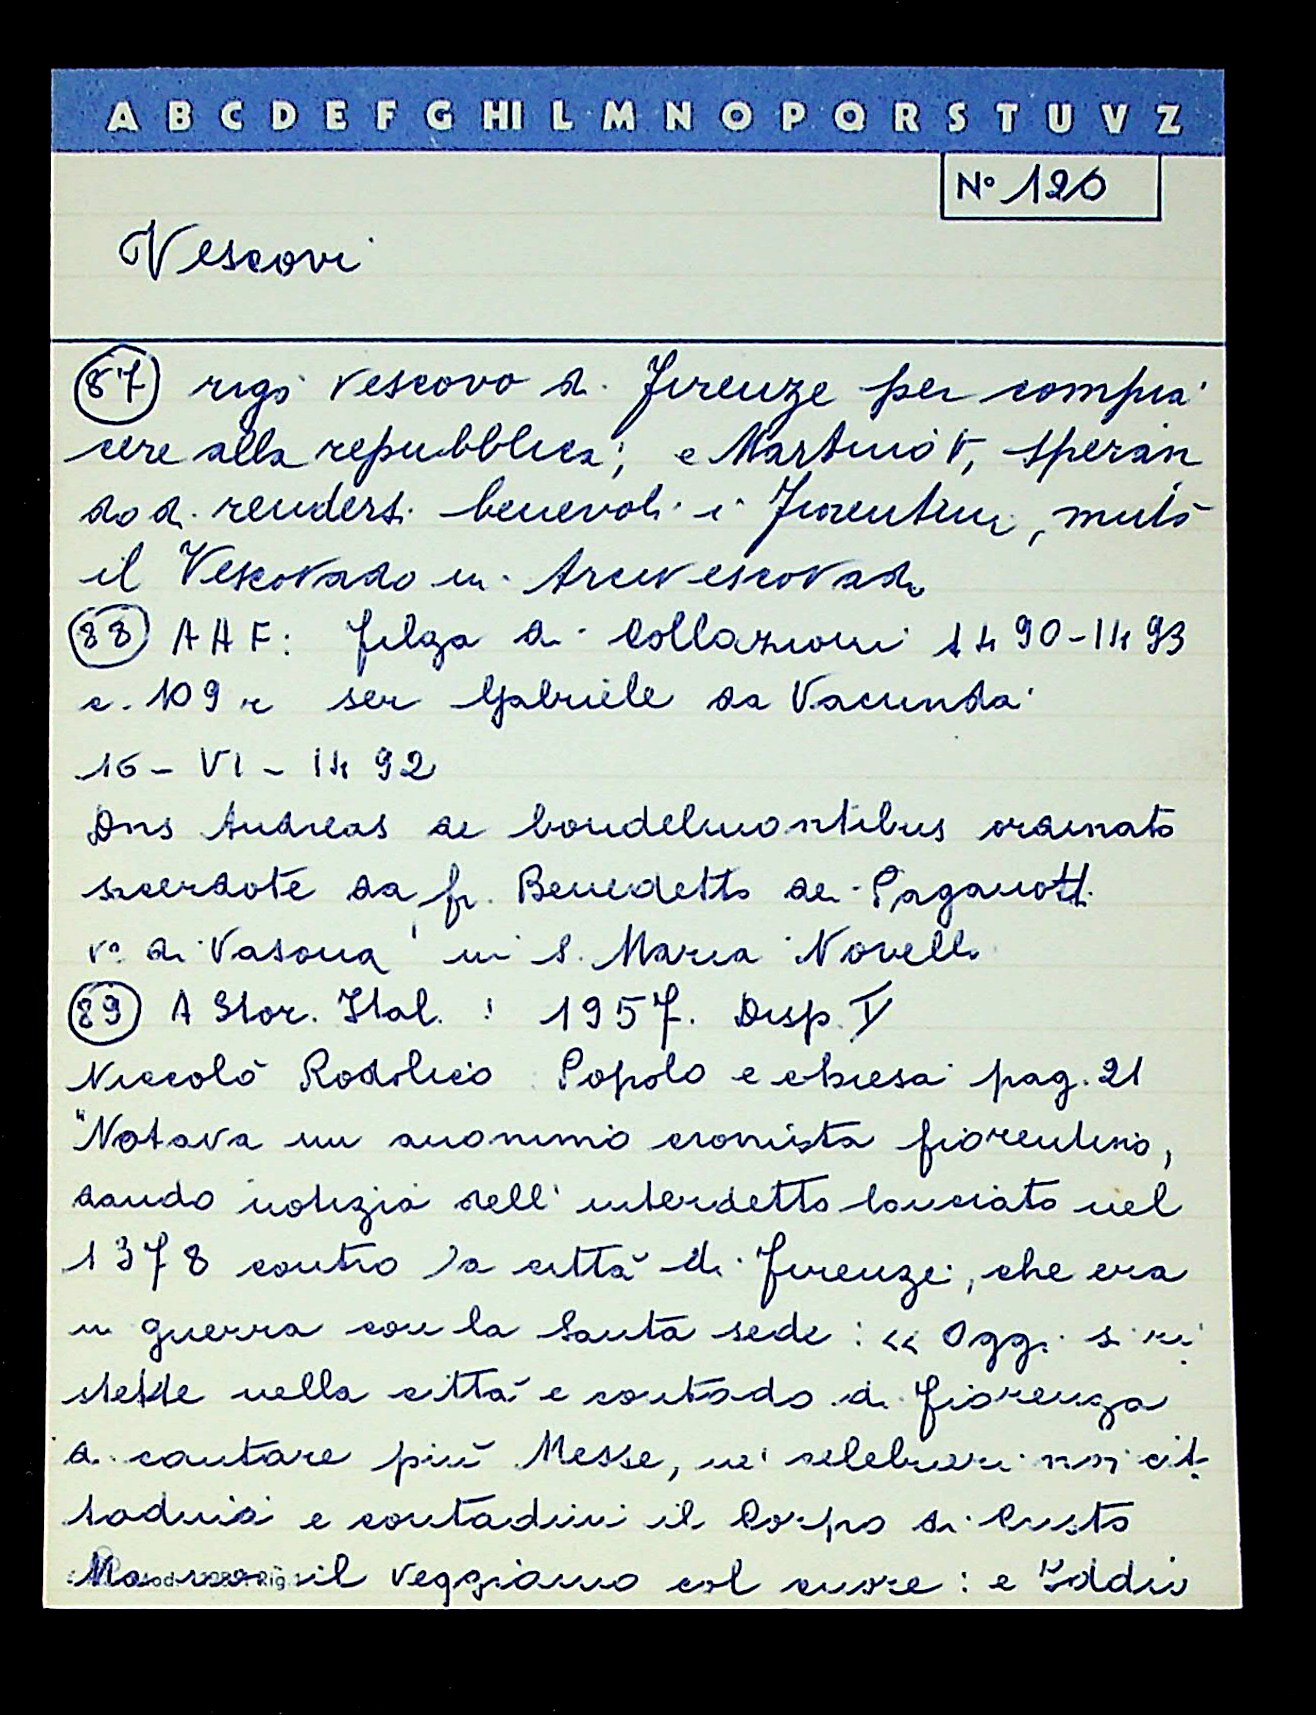 A B C D E F G HI L M N O P Q R S T U V Z
N° 120
Vescovi
87 rigi vescovo di Firenze per compia
cere alla repubblica; e Martino V, speran
do di rendersi benevoli i Fiorentini, mutò
il Vescovado in Arcivescovado
88 AAF: filza di Collazioni 1490-1493
c. 109 r ser Gabriele da Vacunda
16 - VI - 1492
Dns Andreas de bondelmontibus ordinato
sacerdote da fr. Benedetto de Paganotti
v° di Vasona in S. Maria Novella
89 A Stor. Ital. : 1957. Disp. IV
Niccolò Rodolico Popolo e chiesa pag. 21
"Notava un anonimo cronista fiorentino,
dando notizia dell'interdetto lanciato nel
1378 contro la città di Firenze, che era
in guerra con la Santa sede: << Oggi si ri
stette nella città e contado di Fiorenza
di cantare più Messe, né celebrare noi cit
tadini e contadini il Corpo di Cristo
Ma noi il veggiamo col cuore: e Iddio